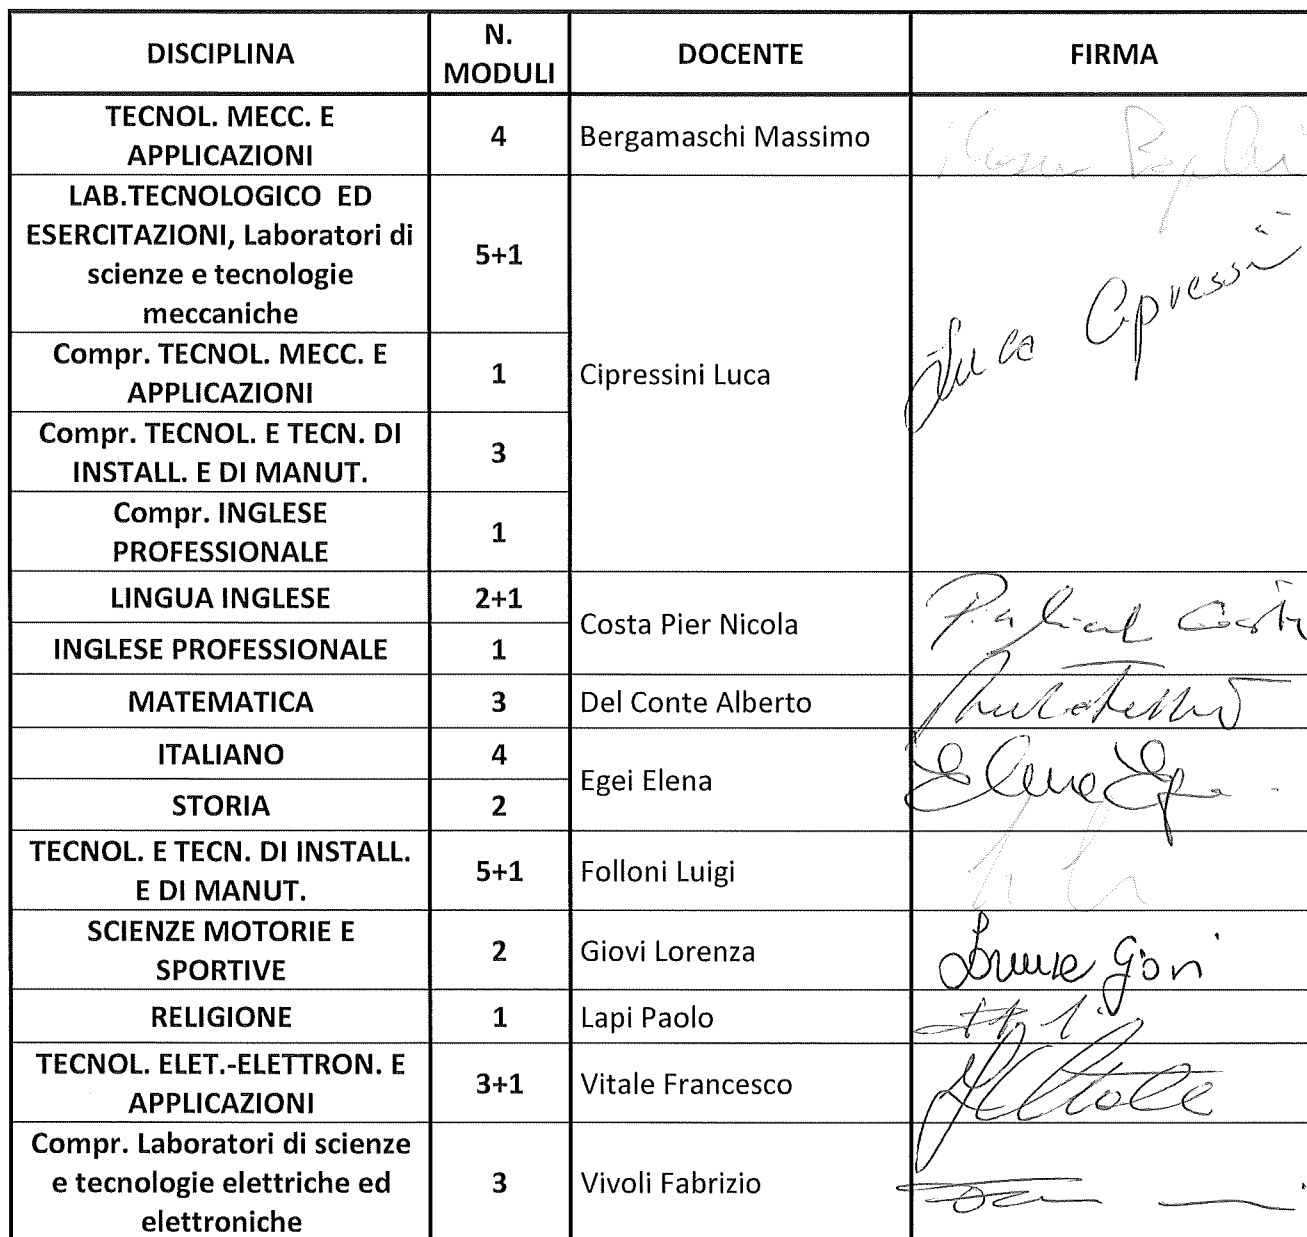 DISCIPLINA
N.
MODULI
DOCENTE
FIRMA
TECNOL. MECC. E
APPLICAZIONI
4
Bergamaschi Massimo
LAB.TECNOLOGICO ED
ESERCITAZIONI, Laboratori di
scienze e tecnologie
meccaniche
5+1
Cipressini Luca
Luca Cipressini
Compr. TECNOL. MECC. E
APPLICAZIONI
1
Compr. TECNOL. E TECN. DI
INSTALL. E DI MANUT.
3
Compr. INGLESE
PROFESSIONALE
1
LINGUA INGLESE
2+1
Costa Pier Nicola
Costa
INGLESE PROFESSIONALE
1
MATEMATICA
3
Del Conte Alberto
ITALIANO
4
Egei Elena
Elena Egei
STORIA
2
TECNOL. E TECN. DI INSTALL.
E DI MANUT.
5+1
Folloni Luigi
SCIENZE MOTORIE E
SPORTIVE
2
Giovi Lorenza
RELIGIONE
1
Lapi Paolo
TECNOL. ELET.-ELETTRON. E
APPLICAZIONI
3+1
Vitale Francesco
Compr. Laboratori di scienze
e tecnologie elettriche ed
elettroniche
3
Vivoli Fabrizio